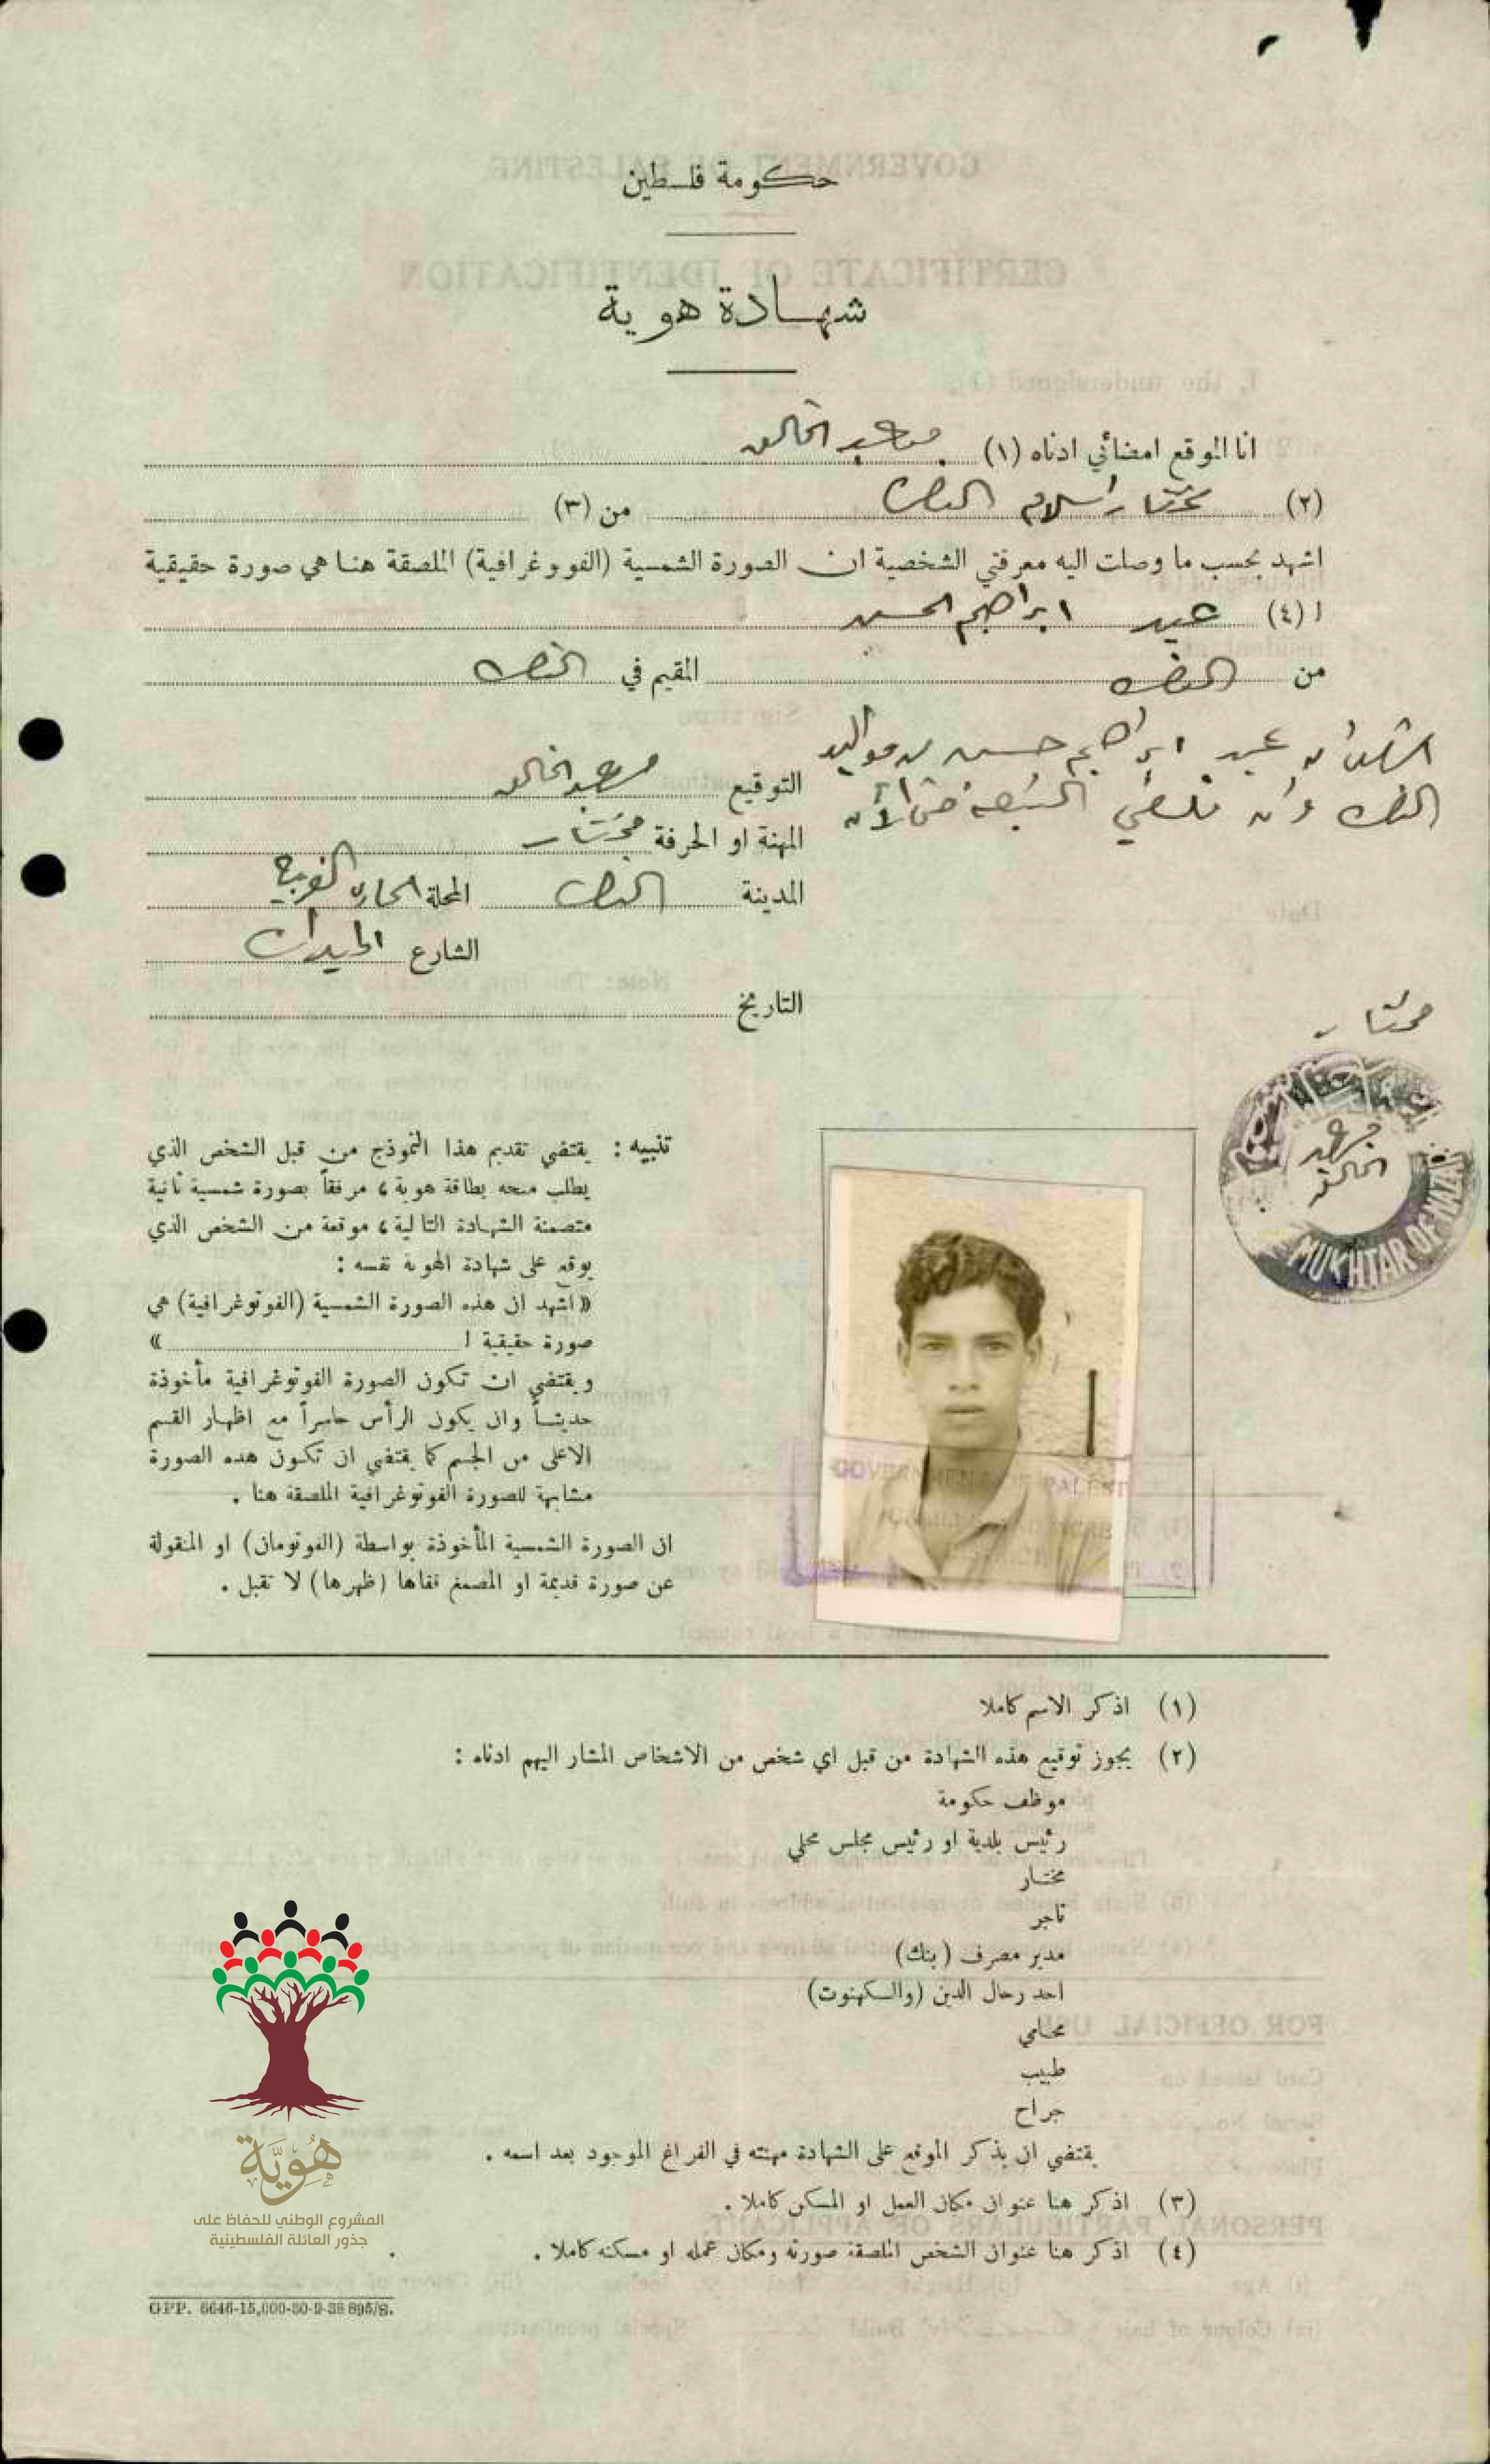 حكومة فلسطين
شهادة هوية
انا الموقع امضائي ادناه (١) عبد الخالق
(٢) مختار اسلام من (٣)
اشهد بحسب ما وصلت اليه معرفتي الشخصية ان الصورة الشمسية (الفوتوغرافية) الملصقة هنا هي صورة حقيقية
ا (٤) عيد ابراهيم الحسين
من المقيم في
عيد ابراهيم حسين من مواليد
حتى الآن
التوقيع عبد الخالق
المهنة او الحرفة مختار
المدينة المحلة الحاره الغربيه
الشارع الميدان
التاريخ
مختار
عبد
الخالق
MUKHTAR OF
تنبيه : يقتضي تقديم هذا النموذج من قبل الشخص الذي
يطلب منحه بطاقة هوية ، مرفقاً بصورة شمسية ثانية
متضمنة الشهادة التالية ، موقعة من الشخص الذي
يوقع على شهادة الهوية نفسه :
« اشهد ان هذه الصورة الشمسية (الفوتوغرافية) هي
صورة حقيقية ا »
ويقتضي ان تكون الصورة الفوتوغرافية مأخوذة
حديثاً وان يكون الرأس حاسراً مع اظهار القسم
الاعلى من الجسم كما يقتضي ان تكون هذه الصورة
مشابهة للصورة الفوتوغرافية الملصقة هنا .
ان الصورة الشمسية المأخوذة بواسطة (الفوتومان) او المنقولة
عن صورة قديمة او المصمغ قفاها (ظهرها) لا تقبل .
GOVERNMENT OF PALEST
(١) اذكر الاسم كاملا
(٢) يجوز توقيع هذه الشهادة من قبل اي شخص من الاشخاص المشار اليهم ادناه :
موظف حكومة
رئيس بلدية او رئيس مجلس محلي
مختار
تاجر
مدير مصرف (بنك)
احد رجال الدين (والكهنوت)
محامي
طبيب
جراح
يقتضي ان يذكر الموقع على الشهادة مهنته في الفراغ الموجود بعد اسمه .
(٣) اذكر هنا عنوان مكان العمل او المسكن كاملا .
(٤) اذكر هنا عنوان الشخص الملصقة صورته ومكان عمله او مسكنه كاملا .
هُوِيَّة
المشروع الوطني للحفاظ على
جذور العائلة الفلسطينية
GPP. 6646-15,000-30-9-38 895/S.